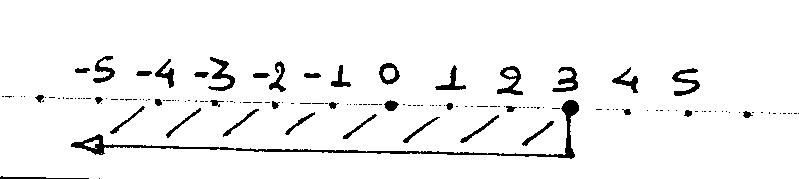 -5 -4 -3 -2 -1 0 1 2 3 4 5